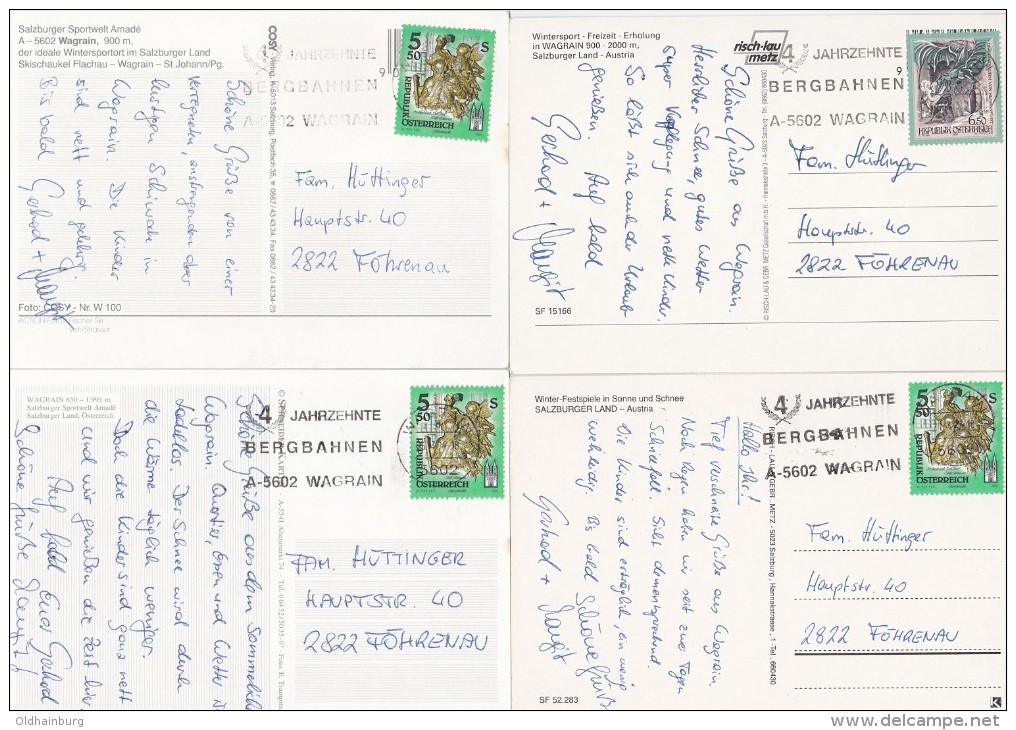 Salzburger Sportwelt Amadé
A-5602 Wagrain, 900 m,
der ideale Wintersportort im Salzburger Land
Skischaukel Flachau – Wagrain – St.Johann/Pg.
Schöne Grüße von einer
verregneten, anstrengenden aber
lustigen Schiwoche in
Wagrain. Die Kinder
sind nett und
Bis bald
Gerhard + Margit
Foto: COSY - Nr. W 100
COSY - Verlag, A-5013 Salzburg, Postfach 35, 0662/43 43 34, Fax 0662/43 43 34-20
4 JAHRZEHNTE
BERGBAHNEN
A-5602 WAGRAIN
5 50 S
REPUBLIK
ÖSTERREICH
Fam. Hüttinger
Hauptstr. 40
2822 Föhrenau
Wintersport - Freizeit - Erholung
in WAGRAIN 900 - 2000 m,
Salzburger Land - Austria
Schöne Grüße aus Wagrain.
Herrlicher Sonne, gutes Wetter
super Verpflegung und nette Kinder.
So läßt sich auch der Urlaub
genießen. Auf bald
Gerhard + Margit
SF 15166
risch-lau
metz
4 JAHRZEHNTE
BERGBAHNEN
A-5602 WAGRAIN
6.50
REPUBLIK ÖSTERREICH
Fam. Hüttinger
Hauptstr. 40
2822 FÖHRENAU
WAGRAIN 850 – 1.991 m
Salzburger Sportwelt Amadé
Salzburger Land, Österreich
Schöne Grüße aus dem Sommerlichen
Wagrain. Quartier, Essen und Wetter
tadellos. Der Schnee wird durch
die Wärme täglich weniger.
Doch die Kinder sind ganz nett
und wir genießen die Zeit hier.
Auf bald Eure Gerhard
Schöne Grüße Margit
4 JAHRZEHNTE
BERGBAHNEN
A-5602 WAGRAIN
5602
5 50 S
REPUBLIK
ÖSTERREICH
FAM. HÜTTINGER
HAUPTSTR. 40
2822 FÖHRENAU
Winter-Festspiele in Sonne und Schnee
SALZBURGER LAND – Austria
Hallo Ihr!
Tief verschneite Grüße aus Wagrain.
Nach Regen haben wir seit zwei Tagen
Schneefall. Sicht dementsprechend.
Die Kinder sind erträglich, ein wenig
wehleidig. Bis bald Schöne Grüße
Gerhard + Margit
SF 52.283
RISCH-LAU GEBR. METZ - 5023 Salzburg, Hannakstrasse 1 - Tel. 660430
4 JAHRZEHNTE
BERGBAHNEN
A-5602 WAGRAIN
5602
5 50 S
REPUBLIK
ÖSTERREICH
Fam. Hüttinger
Hauptstr. 40
2822 FÖHRENAU
K
Oldhainburg
delcampe.net